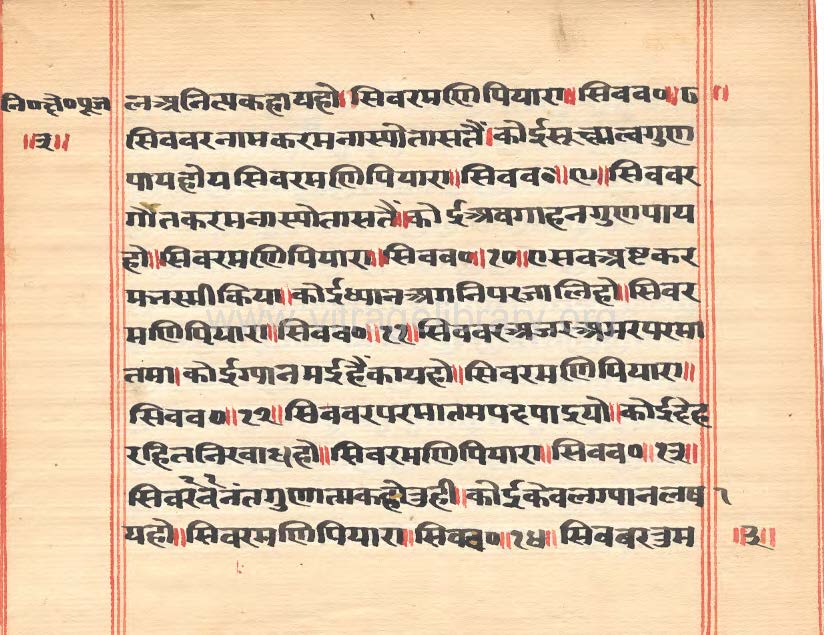 नि०चै०पूज
॥३॥
लअनित्पकहायहो॥सिवरमणिपियारा॥सिवव०॥८॥
सिववरनामकरमनास्पोतासतैं॥कोईसूच्मत्वगुण
पायहोयसिवरमणिपियारा॥सिवव०॥९॥सिववर
गौतकरमनास्पोतासतैं॥कोईअवगाहनगुणपाय
हो॥सिवरमणिपियारा॥सिवव०॥१०॥एसवअष्टकर
मनस्मीकिया॥कोईध्पानअगनिपरजालिहो॥सिवर
मणिपियारा॥सिवव०॥११॥सिववरअजरअमरपरमा
तमा।कोईग्पानमईहैंकायहो॥सिवरमणिपियारा॥
सिवव०॥१२॥सिववरपरमातमपदपाइयो॥कोईदेह
रहितनिरवाधहो॥सिवरमणिपियारा॥सिवव०॥१३॥
सिववरवैनंतगुणात्मकहोउही॥कोईकेवलग्पानलषा
यहो॥सिवरमणिपियारा॥सिवव०॥१४॥सिववरउम
॥३॥
www.vitragelibrary.org